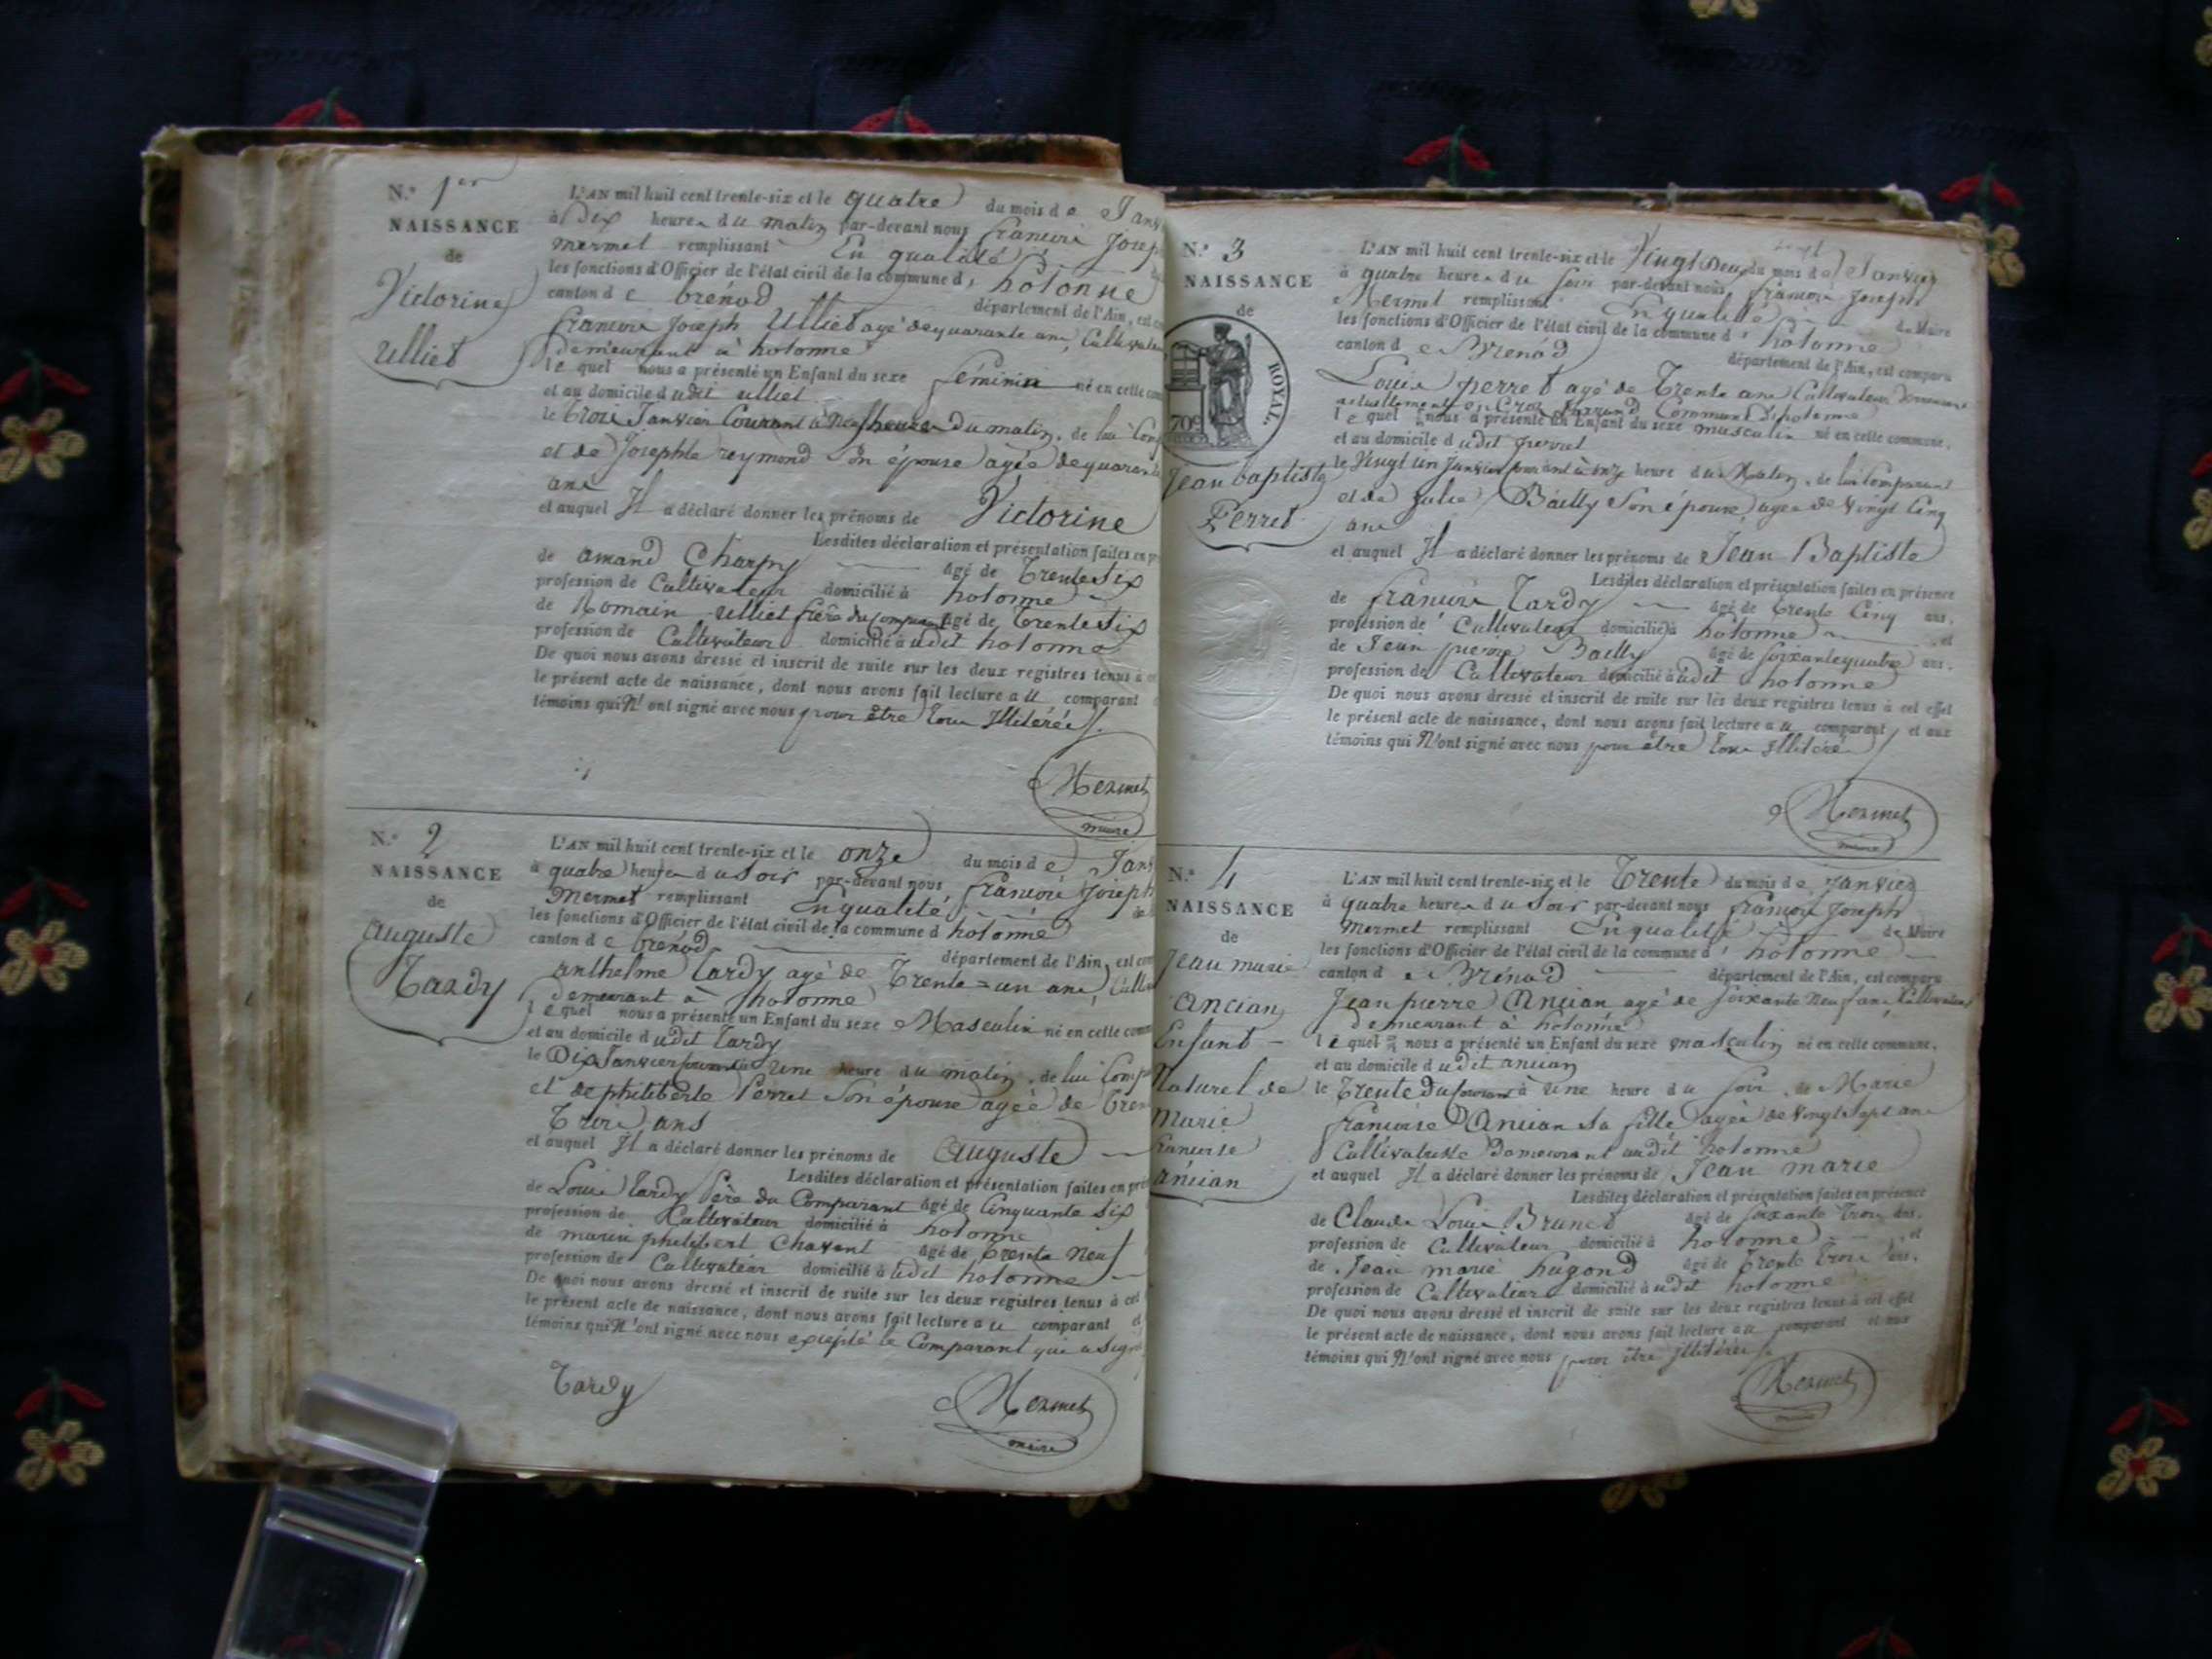 N.° 1er
NAISSANCE
de
Victorine
Ulliet
L'AN mil huit cent trente-six et le quatre du mois de Janv
à Dix heures du matin par-devant nous françois Josep
mermet remplissant En qualité
les fonctions d'Officier de l'état civil de la commune d' hotonne
canton de brénod département de l'Ain, est co
françois Joseph Ulliet agé de quarante ans, Cultivateu
demeurant à hotonne
lequel nous a présenté un Enfant du sexe féminin né en cette com
et au domicile dudit ulliet
le trois Janvier Courant à neuf heures du matin, de lui Com
et de Josephte reymond Son épouse agée de quarante
ans
et auquel Il a déclaré donner les prénoms de Victorine
Lesdites déclaration et présentation faites en pr
de amand Charpy agé de trente Six
profession de Cultivateur domicilié à hotonne
de Romain Ulliet frère du Comparant agé de trente Six
profession de Cultivateur domicilié audit hotonne
De quoi nous avons dressé et inscrit de suite sur les deux registres tenus à ce
le présent acte de naissance, dont nous avons fait lecture au comparant
témoins qui N'ont signé avec nous pour être tous Illitérés.
Mermet
maire
N.° 2
NAISSANCE
de
auguste
Tardy
L'AN mil huit cent trente-six et le onze du mois de Janv
à quatre heures du Soir par-devant nous françois Joseph
Mermet remplissant En qualité de
les fonctions d'Officier de l'état civil de la commune d hotonne
canton de brénod département de l'Ain, est com
anthelme tardy agé de Trente-un ans, Culti
demeurant à hotonne
lequel nous a présenté un Enfant du sexe Masculin né en cette comm
et au domicile dudit tardy
le Dix Janvier courant à une heure du matin, de lui Comp
et de philiberte Perret Son épouse agée de tren
trois ans
et auquel Il a déclaré donner les prénoms de auguste
Lesdites déclaration et présentation faites en pré
de Louis tardy Père du Comparant agé de Cinquante Six
profession de Cultivateur domicilié à hotonne
de marin philibert Chavent agé de trente Neuf
profession de Cultivateur domicilié audit hotonne
De quoi nous avons dressé et inscrit de suite sur les deux registres tenus à cet
le présent acte de naissance, dont nous avons fait lecture au comparant et
témoins qui N'ont signé avec nous excepté le Comparant qui a Signé
Tardy
Mermet
maire
N.° 3
NAISSANCE
de
ROYAL.
70c
Jean baptiste
Perret
L'AN mil huit cent trente-six et le Vingt Deux du mois de Janvier
à quatre heures du Soir par-devant nous françois Joseph
Mermet remplissant En qualité de Maire
les fonctions d'Officier de l'état civil de la commune d' hotonne
canton de Brénod département de l'Ain, est comparu
Louis perret agé de trente ans Cultivateur Demeurant
actuellement en Commune D'hotonne
lequel nous a présenté un Enfant du sexe masculin né en cette commune,
et au domicile dudit perret
le Vingt un Janvier courant à onze heure du Matin, de lui Comparant
et de Julie Bailly Son épouse agée de Vingt Cinq
ans
et auquel Il a déclaré donner les prénoms de Jean Baptiste
Lesdites déclaration et présentation faites en présence
de françois Tardy agé de trente Cinq ans,
profession de Cultivateur domicilié à hotonne et
de Jean pierre Bailly agé de Soixante quatre ans,
profession de Cultivateur domicilié audit hotonne
De quoi nous avons dressé et inscrit de suite sur les deux registres tenus à cet effet
le présent acte de naissance, dont nous avons fait lecture au comparant et aux
témoins qui N'ont signé avec nous pour être tous Illitérés
Mermet
maire
N.° 4
NAISSANCE
de
Jean marie
ancian
Enfant
Naturel de
Marie
francoise
ancian
L'AN mil huit cent trente-six et le Trente du mois de Janvier
à quatre heures du Soir par-devant nous françois Joseph
Mermet remplissant En qualité de Maire
les fonctions d'Officier de l'état civil de la commune d' hotonne
canton de Brénod département de l'Ain, est comparu
Jean pierre Ancian agé de Soixante Neuf ans, Cultivateur
demeurant à hotonne
lequel nous a présenté un Enfant du sexe masculin né en cette commune,
et au domicile dudit ancian
le Trente du Courant à une heure du Soir, de Marie
francoise Ancian Sa fille agée de Vingt Sept ans
Cultivatrice Demeurant audit hotonne
et auquel Il a déclaré donner les prénoms de Jean marie
Lesdites déclaration et présentation faites en présence
de Claude Louis Brunet agé de Soixante trois ans,
profession de Cultivateur domicilié à hotonne et
de Jean marie hugond agé de trente trois ans,
profession de Cultivateur domicilié audit hotonne
De quoi nous avons dressé et inscrit de suite sur les deux registres tenus à cet effet
le présent acte de naissance, dont nous avons fait lecture au comparant et aux
témoins qui N'ont signé avec nous pour être Illitérés
Mermet
maire